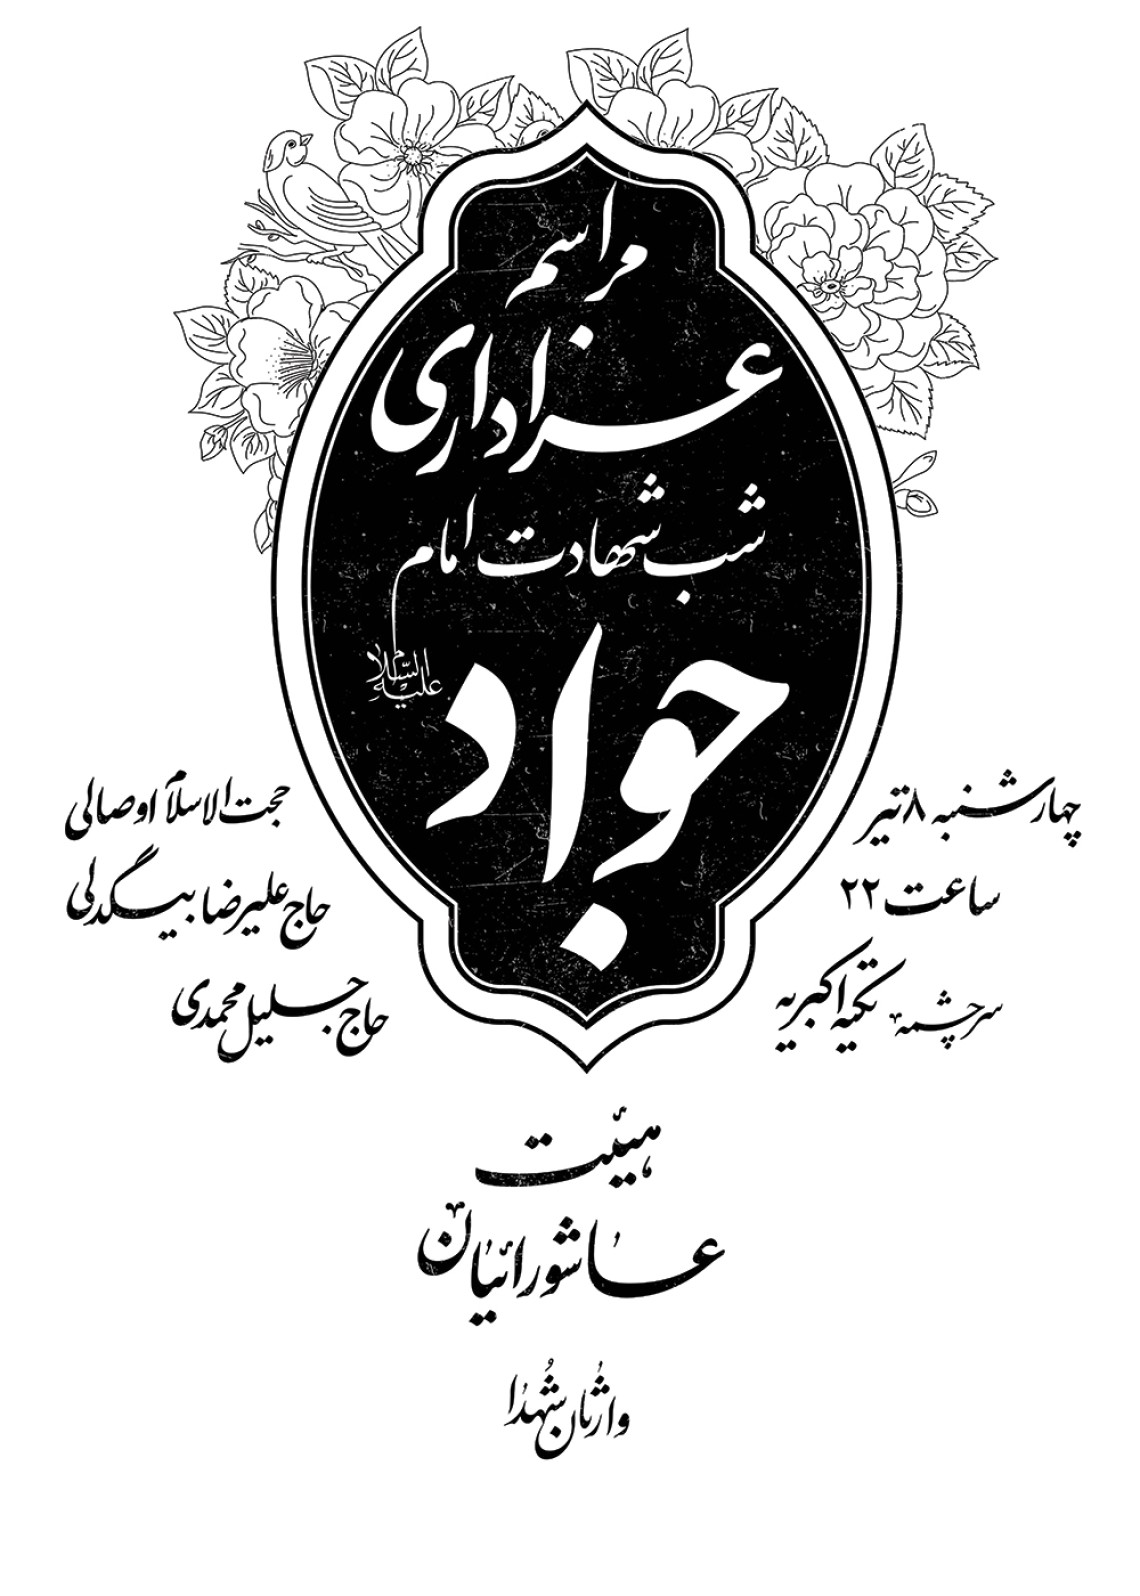 مراسم
عزاداری
شب شهادت امام
جواد
علیه السلام
چهارشنبه ۸ تیر
ساعت ۲۲
سرچشمه تکیه اکبریه
حجت الاسلام اوصالی
حاج علیرضا بیگدلی
حاج جلیل محمدی
هیئت
عاشورائیان
وارثان شهدا